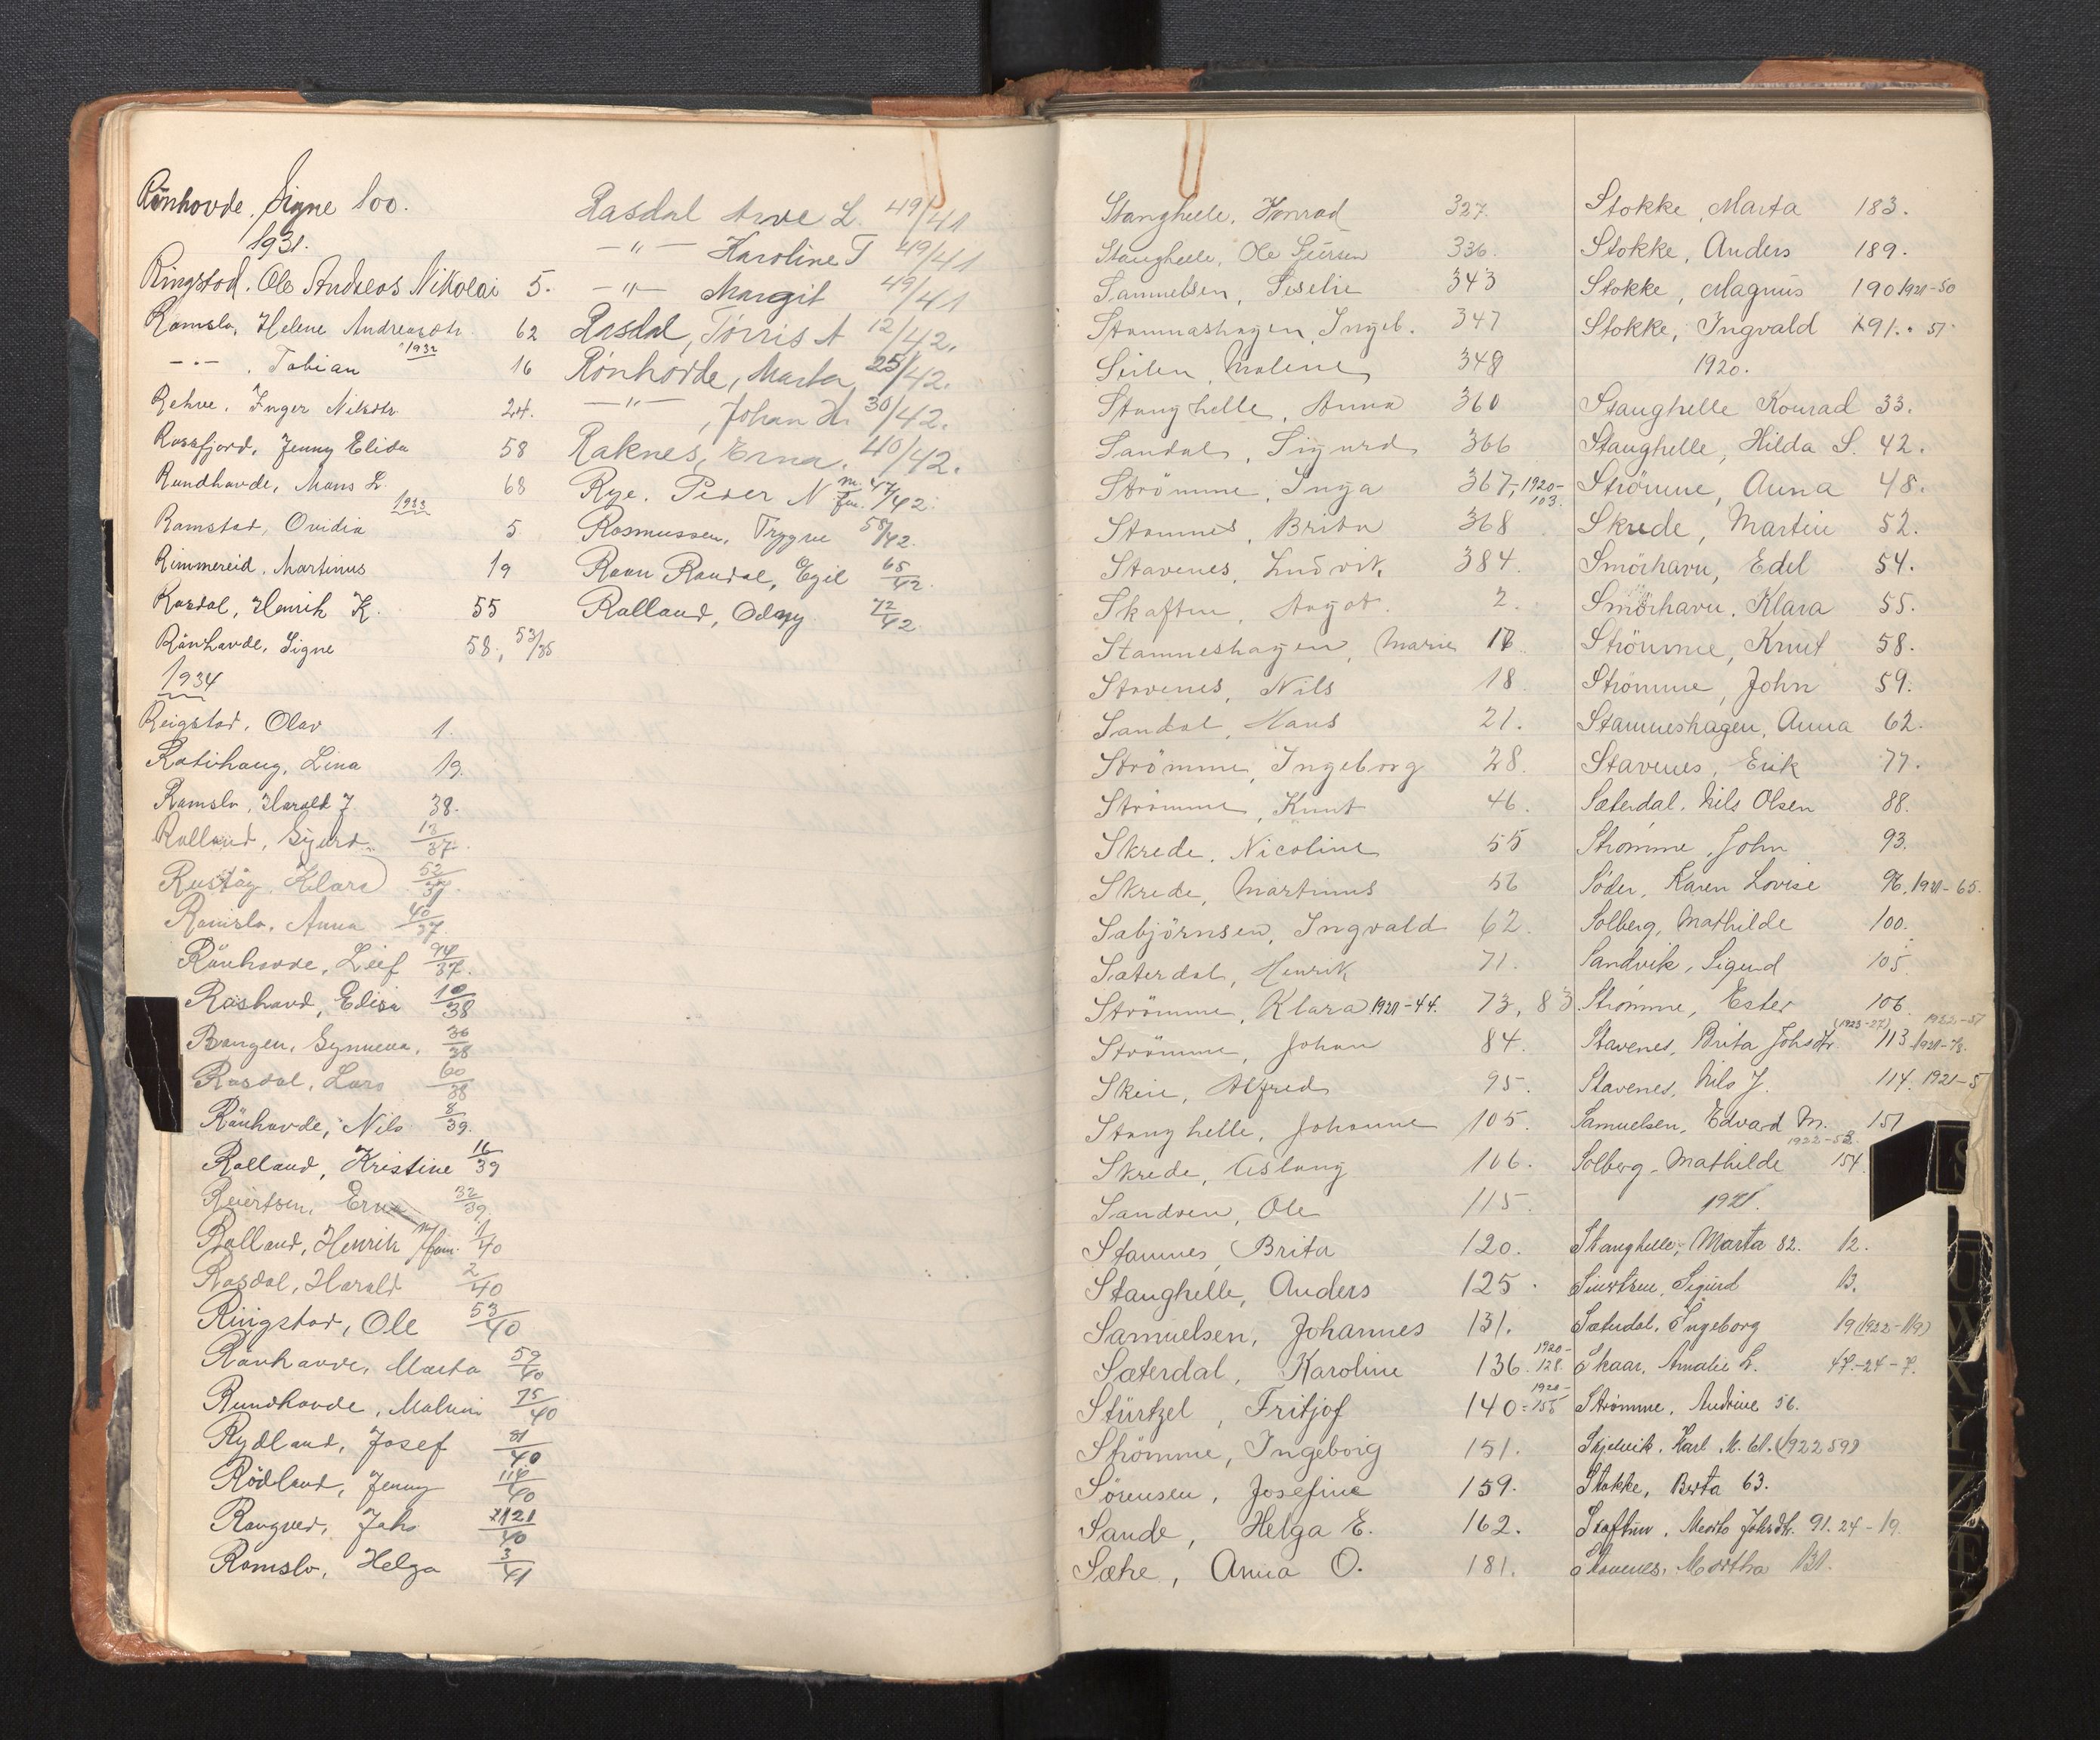 Rönhovde, Signe 100.
1931.
Ringstad, Ole Andreas Nikolai 5.
Ramslo, Helene Andreasdtr. 62
1932
—"— , Tobian 16
Rehve, Inger Nilsdtr. 24.
Rossfjord, Jenny Elida 58
Rundhovde, Mons L. 68
1933
Ramstad, Ovidia 5.
Rimmereid, Martinus 19
Rasdal, Henrik K. 55
Rönhovde, Signe 58, 53/35
1934
Reigstad, Olav 1.
Rotihaug, Lina 19.
Ramslo, Harald J. 38.
Rolland, Sjurd 13/37.
Rustøg, Klara 52/37.
Ramslo, Anna 40/37.
Rönhovde, Leif 94/37.
Edisa 10/38
Synneva, 36/38
Rasdal, Lars 60/38
Rönhovde, Nils 8/39.
Rolland, Kristine 16/39
Reiertsen, Erna 32/39.
Rolland, Henrik m/fam. 1/40
Rasdal, Harald 2/40
Ringstad, Ole 53/40
Rönhovde, Marta 59/40
Rundhovde, Malvin 75/40
Rydland, Josef 81/40
Rödland, Jenny 114/40
Rongved, Johs 121/40
Ramslo, Helga 3/41
Rasdal Arve L. 49/41
—"— Karoline T 49/41
—"— Margit 49/41
Rasdal, Tørris A 12/42.
Rönhovde, Marta 25/42.
—"— , Johan H. 30/42.
Raknes, Erna. 40/42.
Rye, Peder N m. fam. 47/42.
Rasmussen, Trygve 58/42.
Raan Raudal, Egil 65/42.
Rolland, Odny 72/42
Stanghelle, Konrad 327.
Stanghelle, Ole Sjursen 336.
Samuelsen, Seselie 343
Stamneshagen, Ingeb. 347
Seilen, Malene 348
Stanghelle, Anna 360
Sandal, Sigurd 366
Strömme, Inga 367, 1920-103.
Stamnes, Brita 368
Stavenes, Ludvik 384.
Skaftun, Angot. 2.
Stamneshagen, Marie 16.
Stavenes, Nils 18
Sandal, Hans 21.
Strömme, Ingeborg 28.
Strömme, Knut 46.
Skrede, Nicoline 55
Skrede, Martinus 56
Sabjörnsen, Ingvald 62.
Sæterdal, Henrik 71.
Strömme, Klara 1921-44. 73, 83
Strömme, Johan 84.
Skeie, Alfred 95.
Stanghelle, Johanne 105.
Skrede, Aslaug 106.
Sandven, Ole 115.
Stamnes, Brita 120.
Stanghelle, Anders 125.
Samuelsen, Johannes 131.
Sæterdal, Karoline 136. 1920-128.
Stürtzel, Fritjof 140- 1920-155
Strömme, Ingeborg 151.
Sörensen, Josefine 159.
Sande, Helga E. 162.
Sætre, Anna O. 181.
Stokke, Marta 183.
Stokke, Anders 189.
Stokke, Magnus 190 1921-50
Stokke, Ingvald 191. " 51
1920.
Stanghelle Konrad 33.
Stanghelle, Hilda S. 42.
Strömme, Anna 48.
Skrede, Martin 52.
Smörhavn, Edel 54.
Smörhavn, Klara 55.
Strömme, Knut 58.
Strömme, John 59.
Stamneshagen, Anna 62.
Stavenes, Erik 77.
Sæterdal, Nils Olsen 88.
Strömme, John 93.
Söder, Karen Lovise 96, 1921-65.
Solberg, Mathilde 100.
Sandvik, Sigurd 105.
Strömme, Ester 106.
Stavenes, Brita Johsdtr. (1923-27) 113 1921-73. 1922-57
Stavenes, Nils J. 114. 1921-5
Samuelsen, Edvard M. 151
Solberg, Mathilde 1922-53. 154
1921.
Stanghelle, Marta 82. 12.
Sivertsen, Sigurd 13.
Sæterdal, Ingeborg 19 (1922-119)
Skaar, Amalie L. 47.-24-7.
Strömme, Andrine 56.
Skjelvik, Karl M. 61. (1922 59)
Stokke, Berta 63.
Skaftun, Johsdtr. 91. 24-19.
Stavenes, Martha 131.